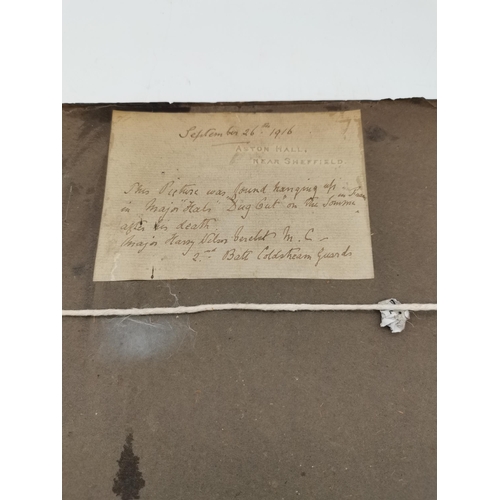 September 26th 1916
ASTON HALL,
NEAR SHEFFIELD.
This Picture was found hanging up
in Major Hals "Dug Out" on the Somme
after his death
Major Harry Verelst M.C -
2nd Batt Coldstream Guards